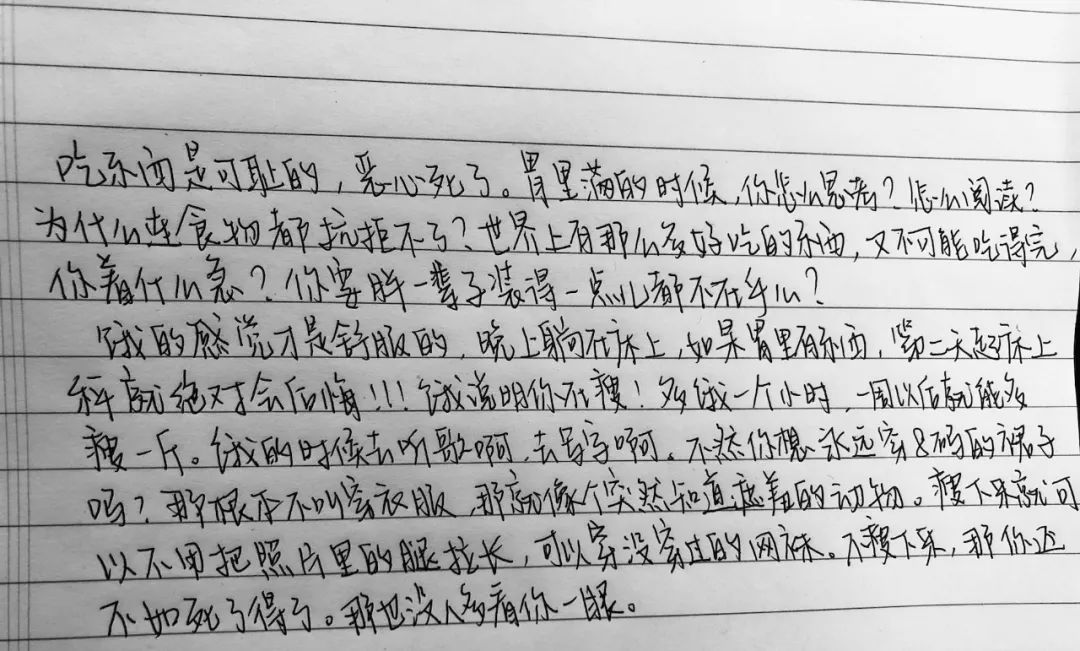 吃东西是可耻的，恶心死了。胃里满的时候，你怎么思考？怎么阅读？
为什么连食物都抗拒不了？世界上有那么多好吃的东西，又不可能吃得完，
你着什么急？你要胖一辈子装得一点儿都不在乎么？
饿的感觉才是舒服的，晚上躺在床上，如果胃里有东西，第二天起床上
秤就绝对会后悔！！！饿说明你在瘦！多饿一个小时，一周以后就能多
瘦一斤。饿的时候去听歌啊，去写字啊。不然你想永远穿8码的裙子
吗？那根本不叫穿衣服，那就像个突然知道遮羞的动物。瘦下来就可
以不用把照片里的腿拉长，可以穿没穿过的网袜。不瘦下来，那你还
不如死了得了。那也没人多看你一眼。